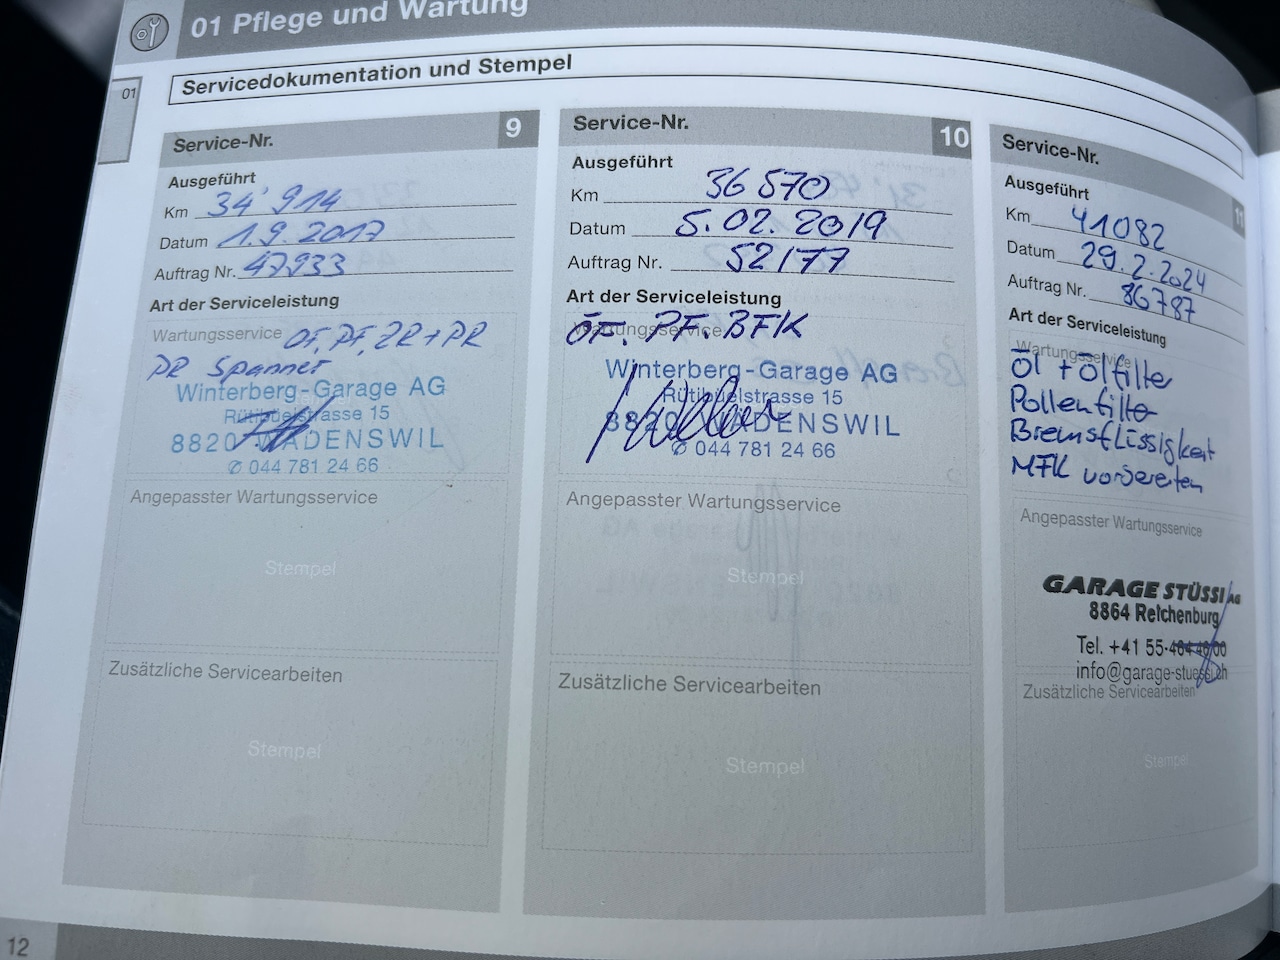 01 Pflege und Wartung
01
Servicedokumentation und Stempel
Service-Nr. 9
Ausgeführt
Km 34'914
Datum 1.9.2017
Auftrag Nr. 47933
Art der Serviceleistung
Wartungsservice ÖF, PF, ZR+PR
PR Spanner
Winterberg-Garage AG
Rütibüelstrasse 15
8820 WÄDENSWIL
✆ 044 781 24 66
Angepasster Wartungsservice
Stempel
Zusätzliche Servicearbeiten
Stempel
Service-Nr. 10
Ausgeführt
Km 36 570
Datum 5.02.2019
Auftrag Nr. 52177
Art der Serviceleistung
Wartungsservice
ÖF. PF. BFlK
Winterberg-Garage AG
Rütibüelstrasse 15
8820 WÄDENSWIL
✆ 044 781 24 66
Angepasster Wartungsservice
Stempel
Zusätzliche Servicearbeiten
Stempel
Service-Nr. 11
Ausgeführt
Km 41082
Datum 29.2.2024
Auftrag Nr. 86787
Art der Serviceleistung
Wartungsservice
Öl + Ölfilter
Pollenfilter
Bremsflüssigkeit
MFK vorbereiten
Angepasster Wartungsservice
GARAGE STÜSSI AG
8864 Reichenburg
Tel. +41 55
info@garage-stuessi.ch
Zusätzliche Servicearbeiten
Stempel
12